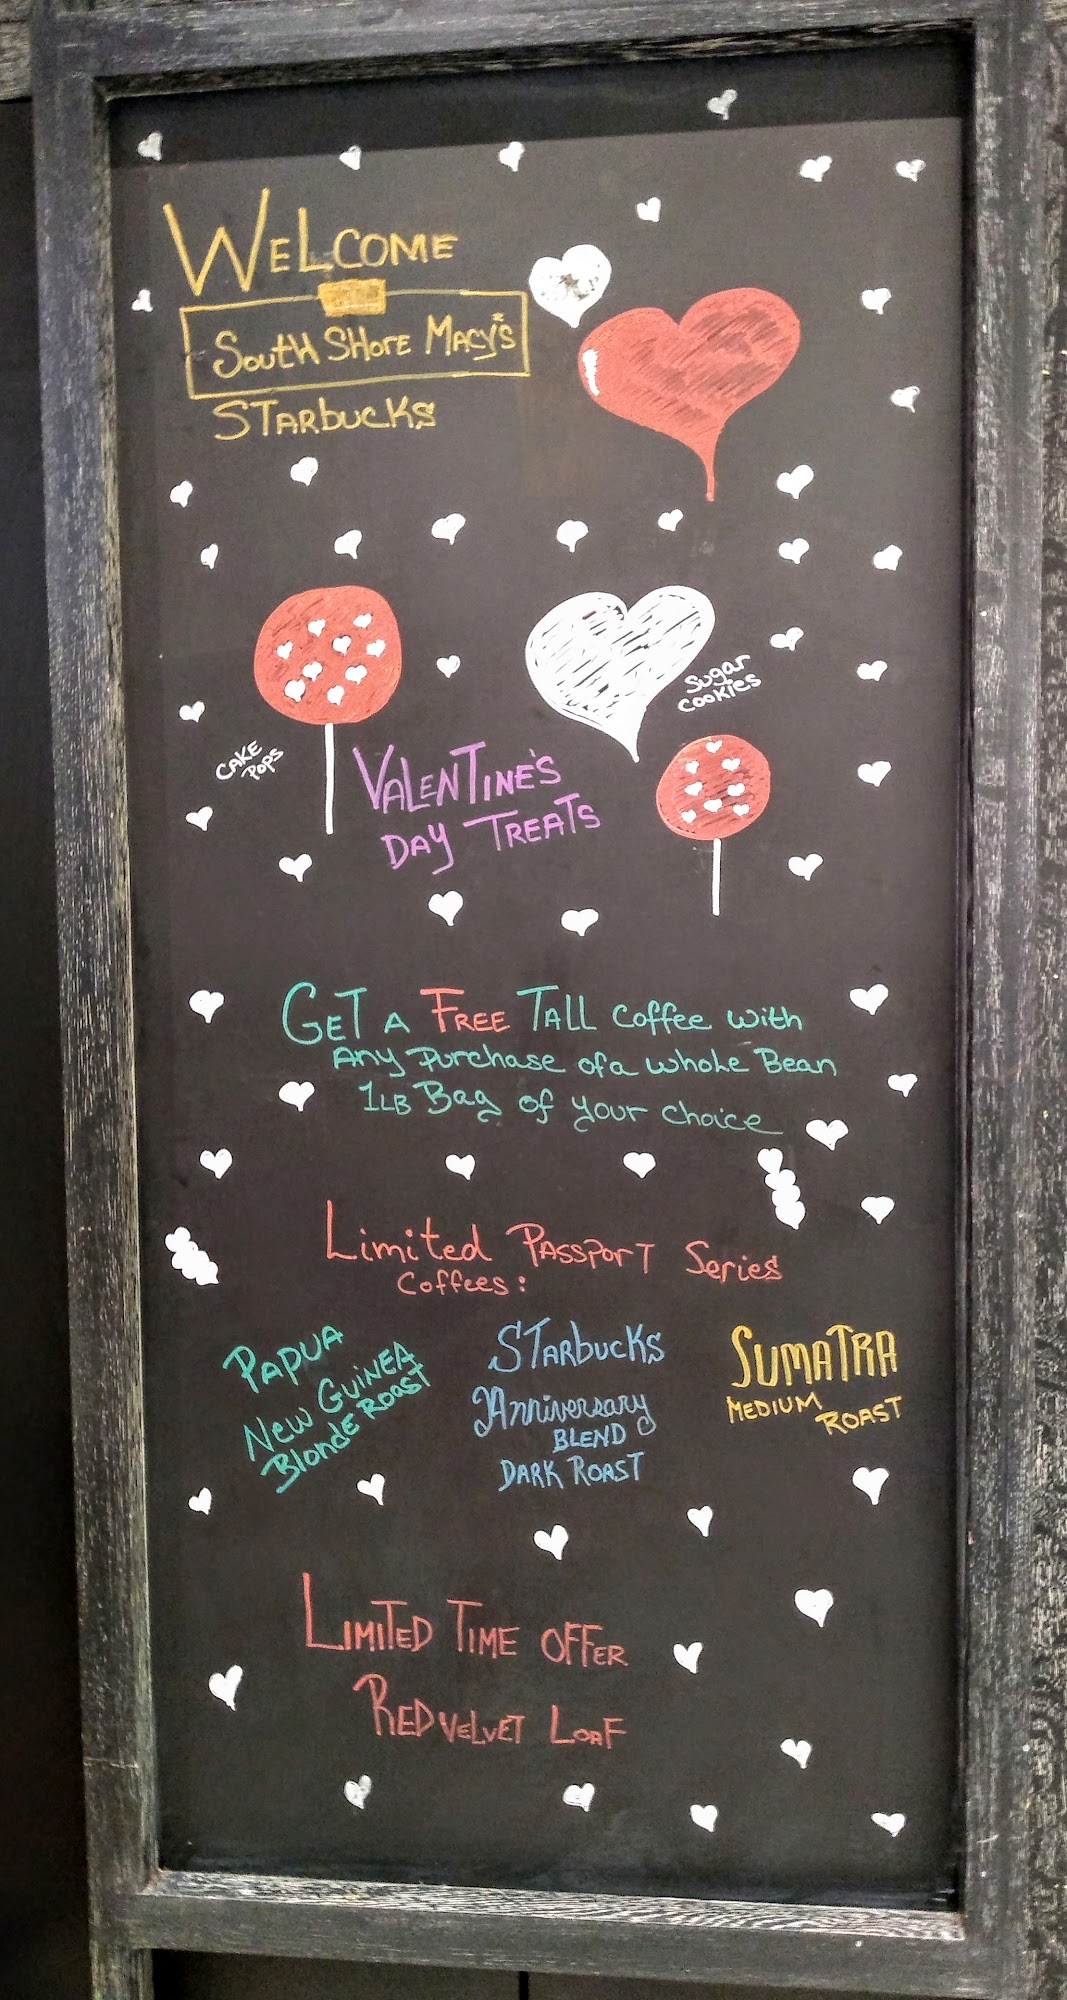 WELCOME
SOUTH SHORE MACY'S
STARBUCKS
Sugar
COOKIES
CAKE
POPS
VALENTINE'S
DAY TREATS
GET A FREE TALL Coffee with
Any Purchase of a whole Bean
1LB Bag of your choice
Limited PASSPORT Series
Coffees:
PAPUA
New GUINEA
Blonde ROAST
STARbucKS
Anniversary
BLEND
DARK ROAST
SUMATRA
MEDIUM
ROAST
LIMITED TIME OFFER
RED VELVET LOAF